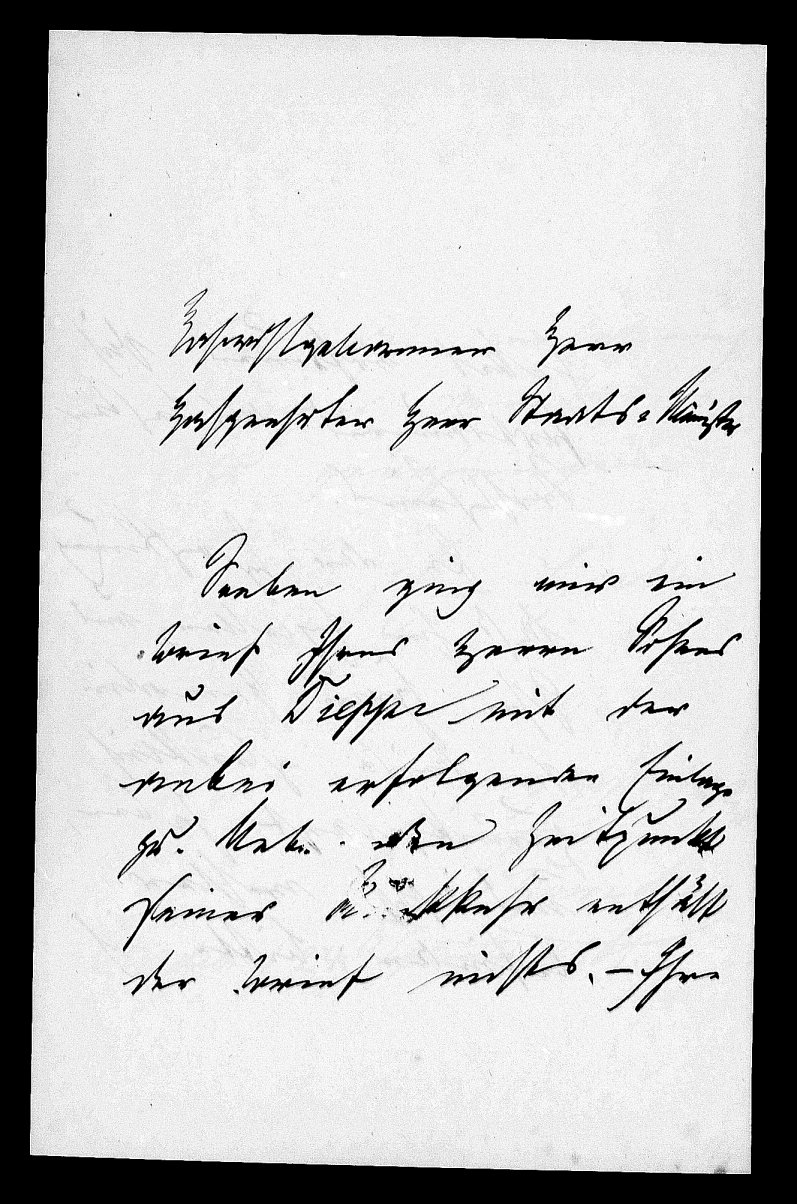 Hochwohlgeborener Herr
Hochgeehrter Herr Staats-Minister
Soeben ging mir ein
Brief Ihres Herrn Sohnes
aus Dieppe mit der
anbei erfolgenden Einlage
zu. Ueber den Zeitpunkt
seiner Rückkehr enthält
der Brief nichts. – Ihre